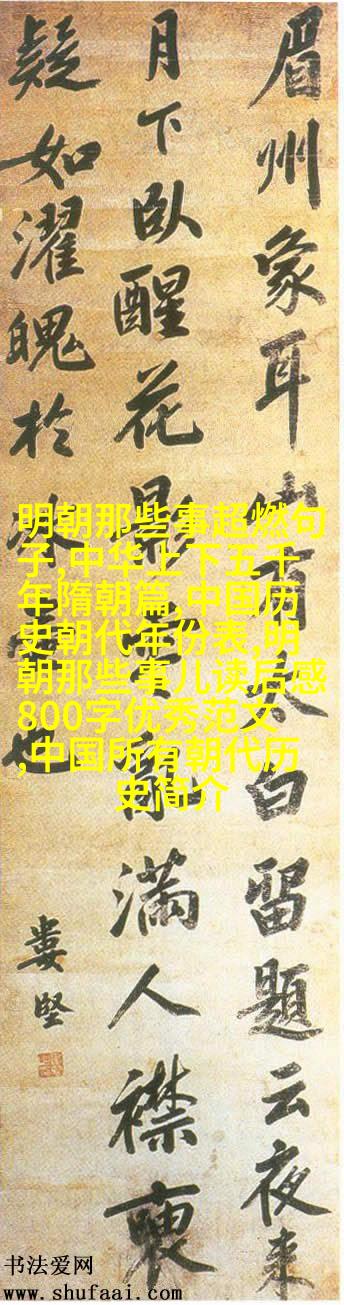 眉州象耳山有太白留題云夜来
月下臥醒花影亂滿人襟
疑如濯魄於冰也
婁堅
明朝那些事超燃句
子,中华上下五千
年隋朝篇,中国历
史朝代年份表,明
朝那些事儿读后感
800字优秀范文
,中国所有朝代历
史简介
书法爱网
www.shufaai.com